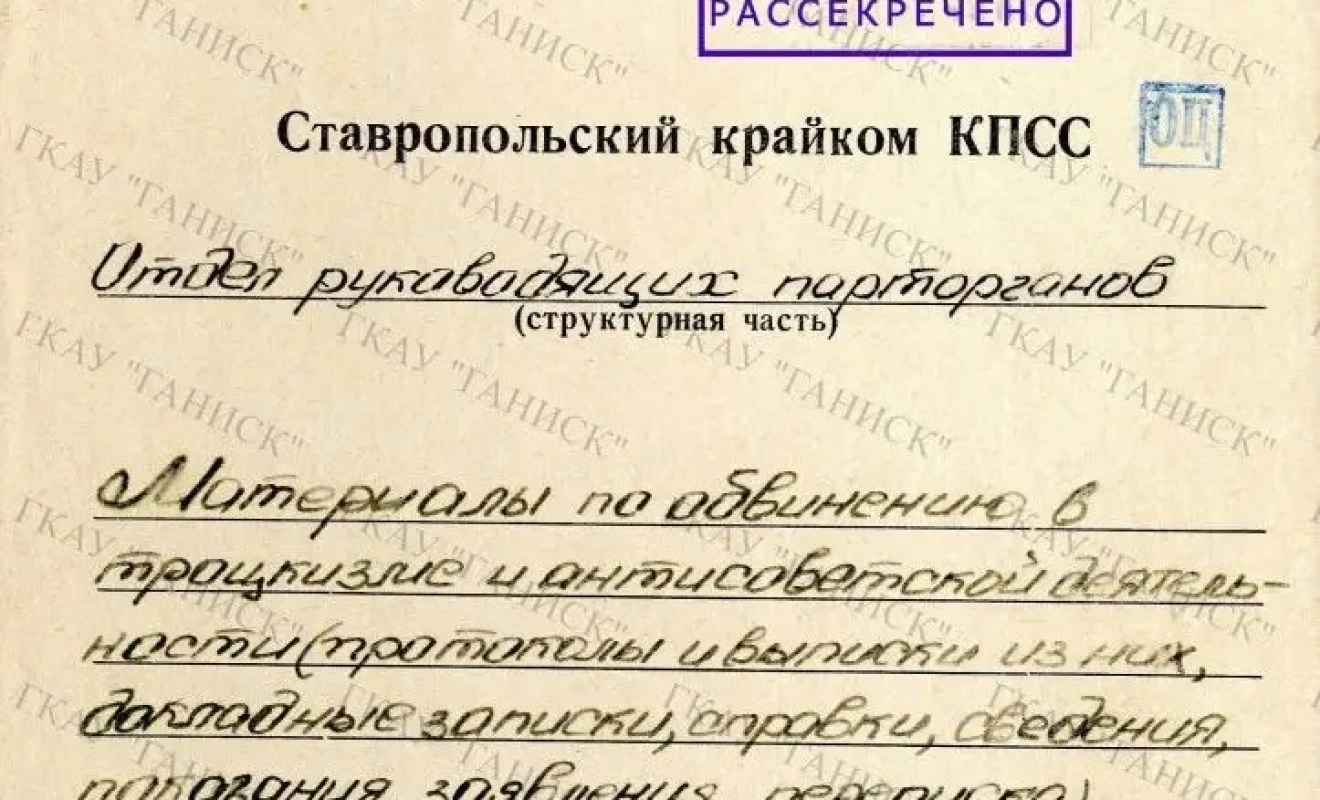 РАССЕКРЕЧЕНО
ОЦ
Ставропольский крайком КПСС
Отдел руководящих парторганов
(структурная часть)
Материалы по обвинению в
троцкизме и антисоветской деятель-
ности (протоколы и выписки из них,
докладные записки, справки, сведения,
показания, заявления, переписка)
ГКАУ "ТАНИСК"